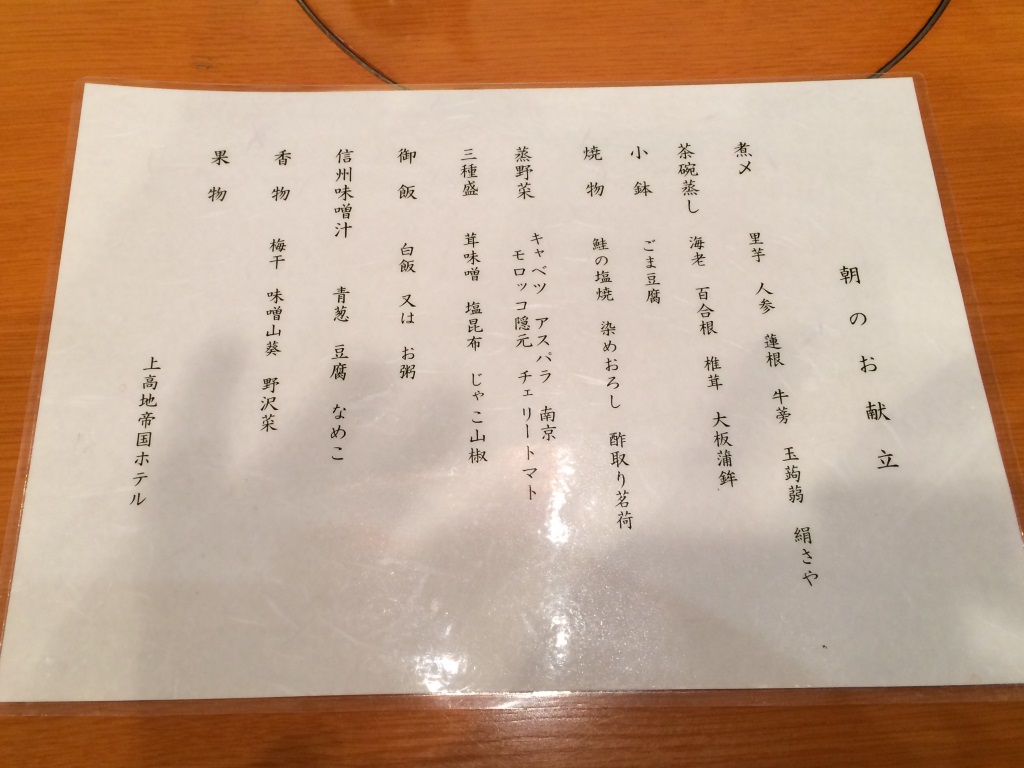 朝のお献立
煮〆 里芋 人参 蓮根 牛蒡 玉蒟蒻 絹さや
茶碗蒸し 海老 百合根 椎茸 大板蒲鉾
小鉢 ごま豆腐
焼物 鮭の塩焼 染めおろし 酢取り茗荷
蒸野菜 キャベツ アスパラ 南京
モロッコ隠元 チェリートマト
三種盛 茸味噌 塩昆布 じゃこ山椒
御飯 白飯 又は お粥
信州味噌汁 青葱 豆腐 なめこ
香物 梅干 味噌山葵 野沢菜
果物
上高地帝国ホテル